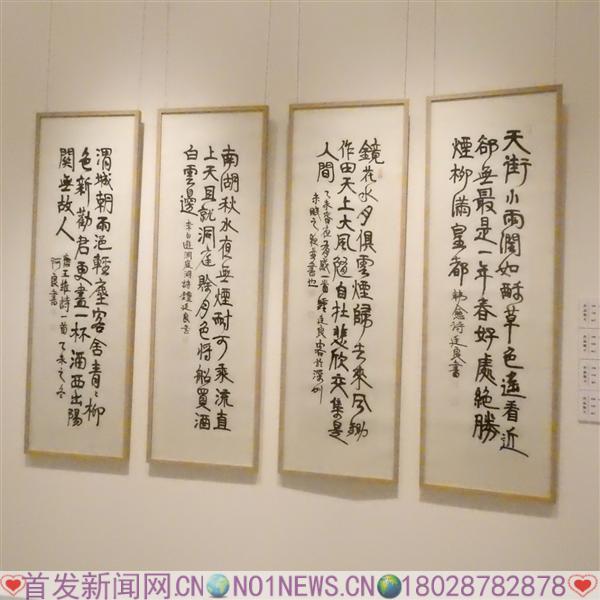 天街小雨潤如酥草色遙看近
卻無最是一年春好處絕勝
煙柳滿皇都 韓愈詩 廷良書
鏡花水月俱雲煙歸去來兮鋤
作田天上大風隨自在悲欣交集是
人間 乙未春夜有感一首 鍾廷良客於深圳
南湖秋水夜無煙耐可乘流直
上天且就洞庭賒月色將船買酒
白雲邊 李白遊洞庭湖詩 鍾廷良書
渭城朝雨浥輕塵客舍青々柳
色新勸君更盡一杯酒西出陽
關無故人 唐王維詩一首 乙未之冬
阿良書
首发新闻网.CN NO1NEWS.CN 18028782878